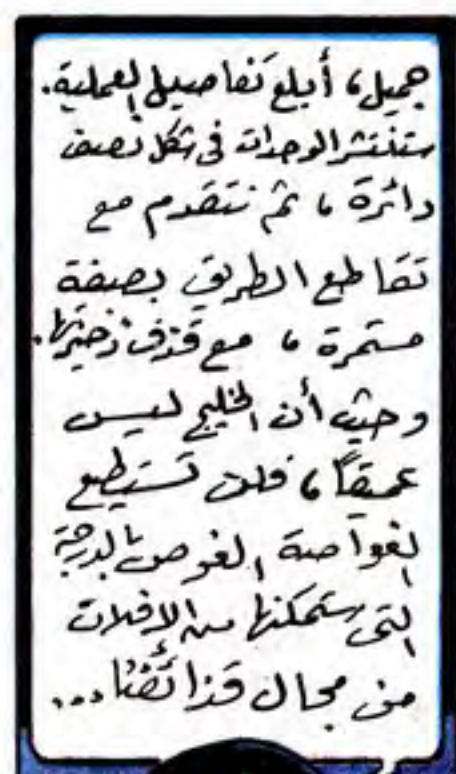 جميل، أبلغ تفاصيل العملية.
ستنتشر الوحدات فى شكل نصف
دائرة، ثم نتقدم مع
تقاطع الطريق بصفة
مستمرة، مع قذف ذخيرتها.
وحيث أن الخليج ليس
عميقاً، فلن تستطيع
الغواصة الغوص بالدرجة
التى ستمكنها من الإفلات
من مجال قذائفنا...